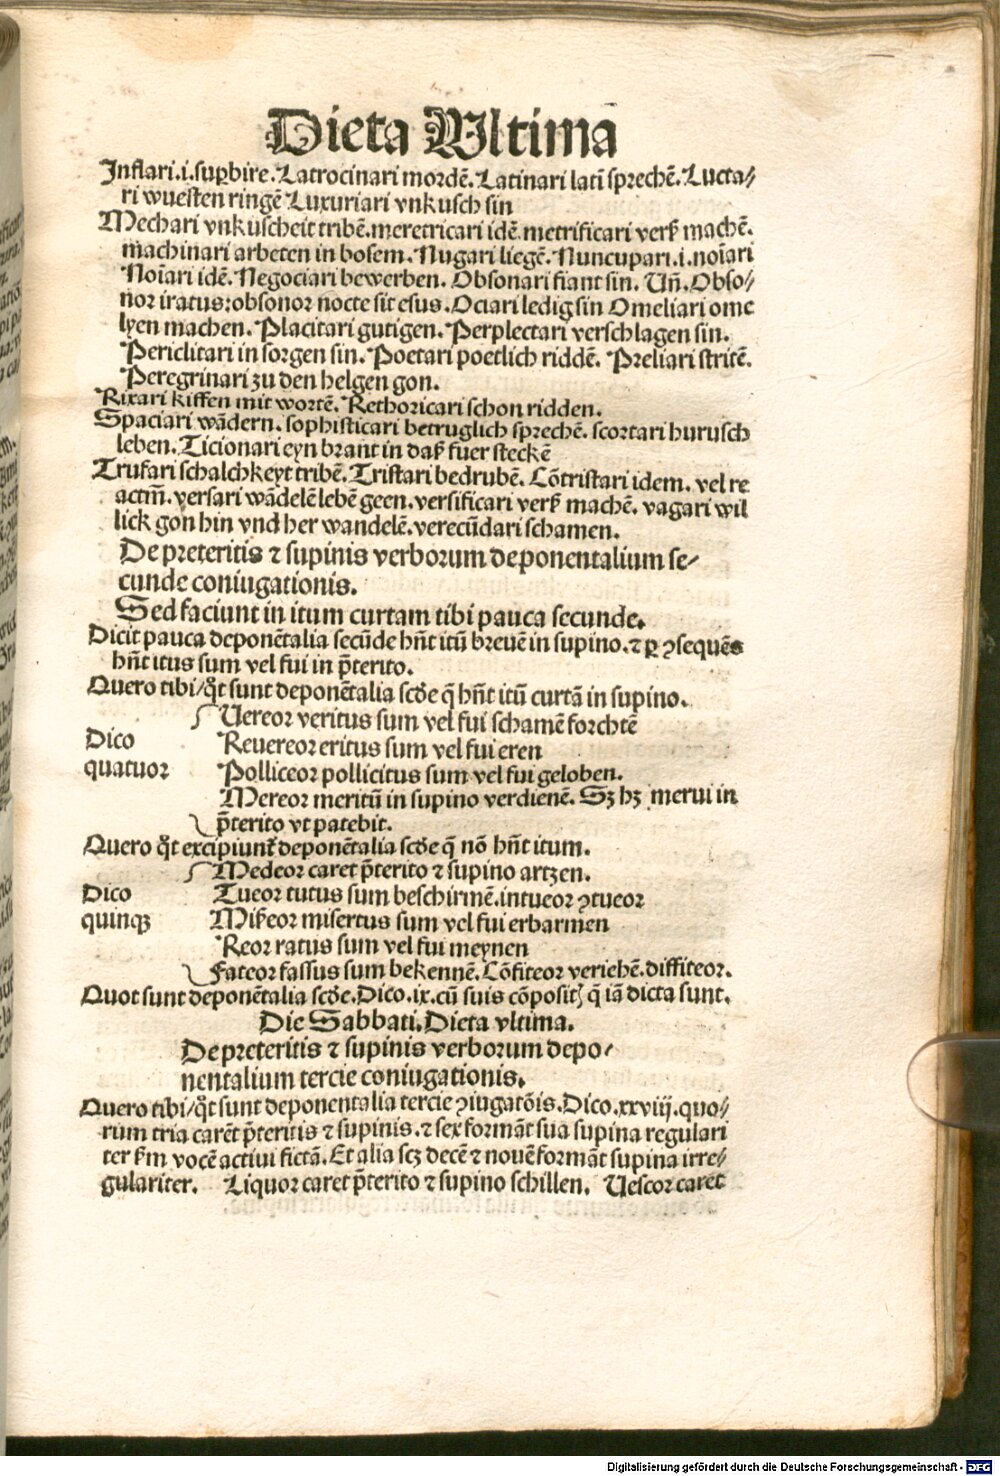 Dieta Vltima
Inflari.i.suꝑbire. Latrocinari mordē. Latinari latī sprechē. Lucta⸗
ri wuesten ringē Luxuriari vnkusch sin
Mechari vnkuscheit tribē. meretricari idē. metrificari verß machē.
machinari arbeten in bosem. Nugari liegē. Nuncupari .i. noīari
Noīari idē. Negociari bewerben. Obsonari fiant sin. Uñ. Obso⸗
nor iratus: obsonor nocte sit esus. Ociari ledig sin Omeliari ome
lyen machen. Placitari gutigen. Perplectari verschlagen sin.
Periclitari in sorgen sin. Poetari poetlich riddē. Preliari stritē.
Peregrinari zu den helgen gon.
Rixari kiffen mit wortē. Rethoricari schon ridden.
Spaciari wādern. sophisticari betruglich sprechē. scortari hurusch
leben. Ticionari eyn brant in daß fuer steckē
Trufari schalchkeyt tribē. Tristari bedrubē. Cōtristari idem. vel re
actm̄. versari wādelē lebē geen. versificari verß machē. vagari wil
lick gon hin vnd her wandelē. verecūdari schamen.
De preteritis ⁊ supinis verborum deponentalium se⸗
cunde coniugationis.
Sed faciunt in itum curtam tibi pauca secunde.
Dicit pauca deponētalia secūde hn̄t itū breuē in supino. ⁊ ꝑ ꝯsequēs
hn̄t itus sum vel fui in p̄terito.
Quero tibi/q̄t sunt deponētalia scd̄e q̄ hn̄t itū curtā in supino.
Uereor veritus sum vel fui schamē forchtē
Dico
Reuereor eritus sum vel fui eren
quatuor
Polliceor pollicitus sum vel fui geloben.
Mereor meritū in supino verdienē. Sꝫ hꝫ merui in
p̄terito vt patebit.
Quero q̄t excipiunt̄ deponētalia scd̄e q̄ nō hn̄t itum.
Medeor caret p̄terito ⁊ supino artzen.
Dico
Tueor tutus sum beschirmē. intueor ꝯtueor
quinqꝫ
Mißeor misertus sum vel fui erbarmen
Reor ratus sum vel fui meynen
Fateor fassus sum bekennē. Cōfiteor veriehē. diffiteor.
Quot sunt deponētalia scd̄e. Dico .ix. cū suis cōpositꝭ q̄ iā dicta sunt.
Die Sabbati. Dieta vltima.
De preteritis ⁊ supinis verborum depo⸗
nentalium tercie coniugationis.
Quero tibi/q̄t sunt deponentalia tercie ꝯiugatōis. Dico. xxviij. quo⸗
rum tria carēt p̄teritis ⁊ supinis. ⁊ sex formāt sua supina regulari
ter ẜm vocē actiui fictā. Et alia scꝫ decē ⁊ nouē formāt supina irre⸗
gulariter. Liquor caret p̄terito ⁊ supino schillen. Uescor caret
Digitalisierung gefördert durch die Deutsche Forschungsgemeinschaft - DFG